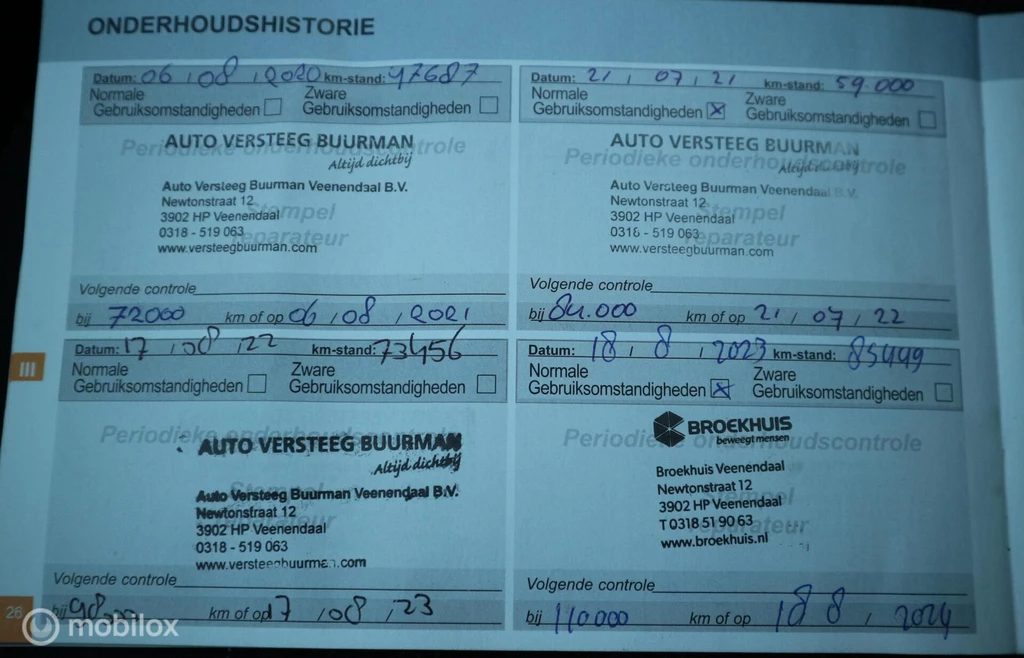 ONDERHOUDSHISTORIE
Datum: 06 / 08 / 2020 km-stand: 47687
Normale Gebruiksomstandigheden
Zware Gebruiksomstandigheden
Periodieke onderhoudscontrole
AUTO VERSTEEG BUURMAN
Altijd dichtbij
Auto Versteeg Buurman Veenendaal B.V.
Newtonstraat 12
3902 HP Veenendaal
0318 - 519 063
www.versteegbuurman.com
Stempel
reparateur
Volgende controle
bij 72000 km of op 06 / 08 / 2021
Datum: 21 / 07 / 21 km-stand: 59.000
Normale Gebruiksomstandigheden X
Zware Gebruiksomstandigheden
Periodieke onderhoudscontrole
AUTO VERSTEEG BUURMAN
Altijd dichtbij
Auto Versteeg Buurman Veenendaal B.V.
Newtonstraat 12
3902 HP Veenendaal
0318 - 519 063
www.versteegbuurman.com
Stempel
reparateur
Volgende controle
bij 84.000 km of op 21 / 07 / 22
III
Datum: 17 / 08 / 22 km-stand: 73456
Normale Gebruiksomstandigheden
Zware Gebruiksomstandigheden
Periodieke onderhoudscontrole
AUTO VERSTEEG BUURMAN
Altijd dichtbij
Auto Versteeg Buurman Veenendaal B.V.
Newtonstraat 12
3902 HP Veenendaal
0318 - 519 063
www.versteegbuurman.com
Stempel
reparateur
Volgende controle
bij km of op 17 / 08 / 23
Datum: 18 / 8 / 2023 km-stand: 85449
Normale Gebruiksomstandigheden X
Zware Gebruiksomstandigheden
Periodieke onderhoudscontrole
BROEKHUIS
beweegt mensen
Broekhuis Veenendaal
Newtonstraat 12
3902 HP Veenendaal
T 0318 51 90 63
www.broekhuis.nl
Stempel
reparateur
Volgende controle
bij 110000 km of op 18 8 / 2024
26
mobilox